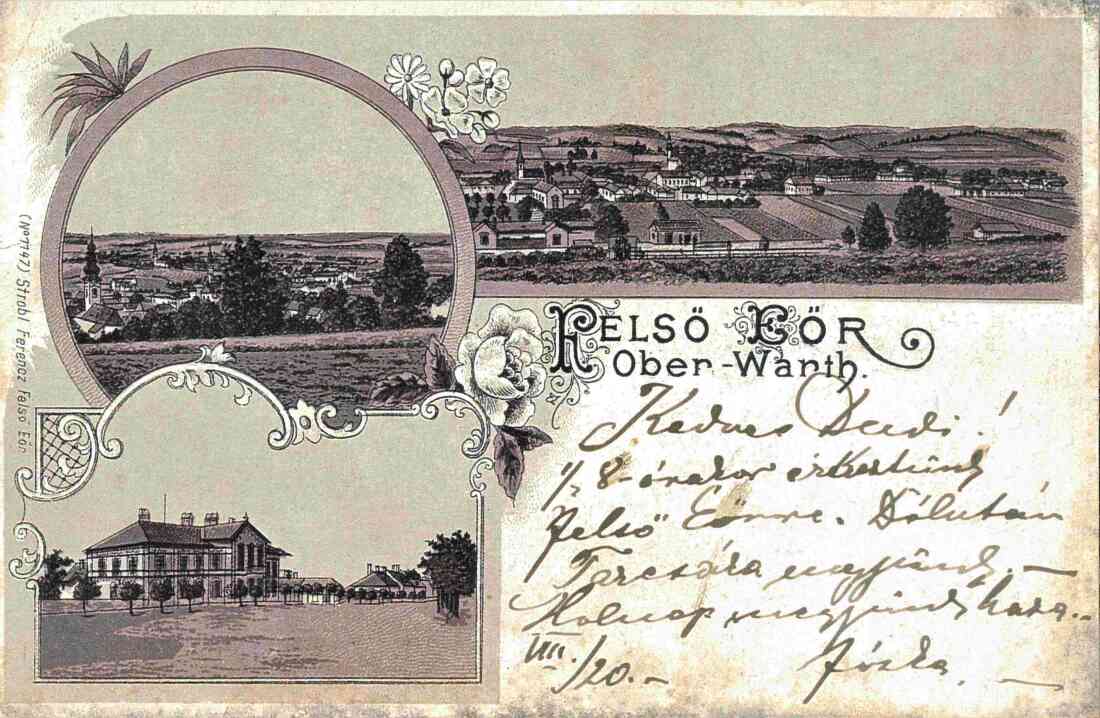 (No 7747) Strobl Ferencz Felső Eőr
FELSŐ EŐR
Ober-Warth.
Kedves Dudi!
1/2 8-órakor érkeztünk
Felső Eőrre. Délután
Tarcsára megyünk. -
Holnap megyünk haza..
VIII./20.-
Jóska. -